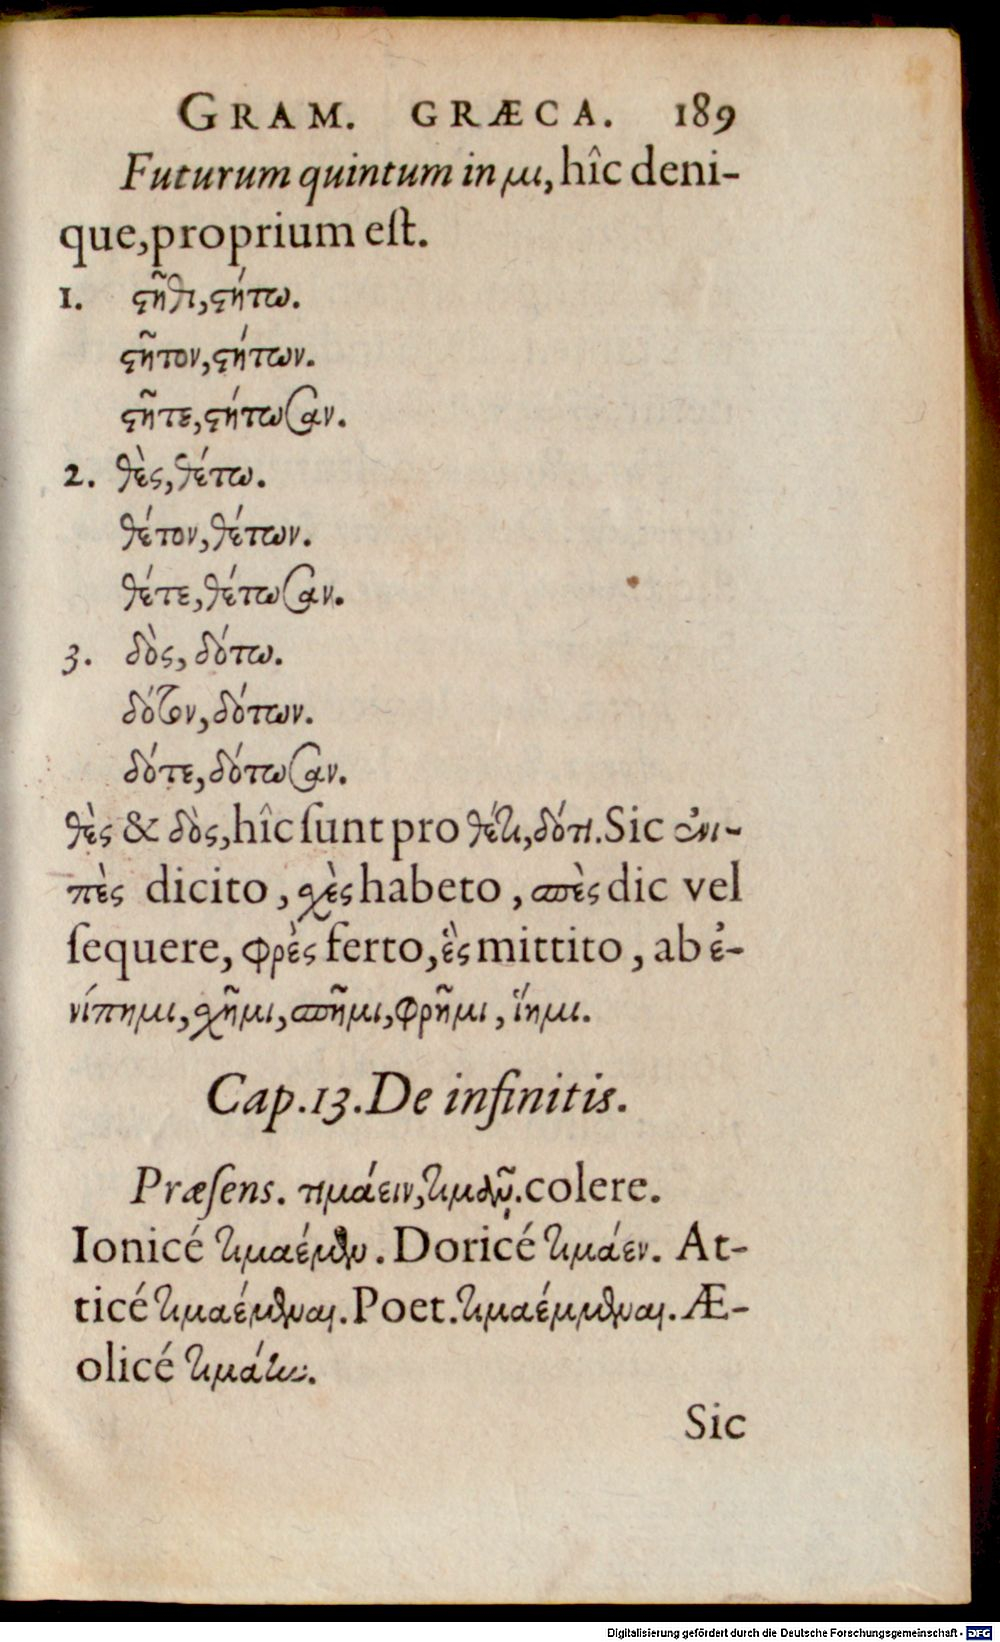 GRAM. GRÆCA. 189
Futurum quintum in μι, hîc deni-
que, proprium eſt.
1. ϛῆθι, ϛήτω.
ϛῆτον, ϛήτων.
ϛῆτε, ϛήτωσαν.
2. θὲς, θέτω.
θέτον, θέτων.
θέτε, θέτωσαν.
3. δὸς, δότω.
δότον, δότων.
δότε, δότωσαν.
θὲς & δὸς, hîc ſunt pro θέτι, δότι. Sic ἐνι-
πὲς dicito, χὲς habeto, σπὲς dic vel
ſequere, φρὲς ferto, ἓς mittito, ab ἐ-
νίπημι, χῆμι, σπῆμι, φρῆμι, ἵημι.
Cap. 13. De infinitis.
Præſens. τιμάειν, τιμᾷν. colere.
Ionicé τιμαέμεν. Doricé τιμάεν. At-
ticé τιμαέμεναι. Poet. τιμαέμμεναι. Æ-
olicé
Sic
Digitalisierung gefördert durch die Deutsche Forschungsgemeinschaft - DFG